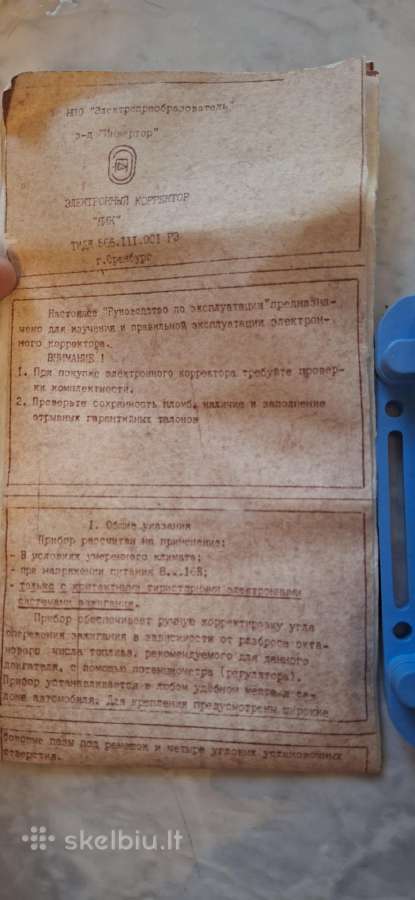 НПО "Электропреобразователь"
з-д "Инвертор"
ЭЛЕКТРОННЫЙ КОРРЕКТОР
"ЭКК"
565.111.001 РЭ
г.Оренбург
Настоящее "Руководство по эксплуатации" предназна-
чено для изучения и правильной эксплуатации электрон-
ного корректора.
ВНИМАНИЕ !
1. При покупке электронного корректора требуйте провер-
ки комплектности.
2. Проверьте сохранность пломб, наличие и заполнение
отрывных гарантийных талонов
I. Общие указания
Прибор рассчитан на применение:
- в условиях умеренного климата;
- при напряжении питания 8...16В;
- только с контактными тиристорными электронными
системами зажигания.
Прибор обеспечивает ручную корректировку угла
опережения зажигания в зависимости от разброса окта-
нового числа топлива, рекомендуемого для данного
двигателя, с помощью потенциометра (регулятора).
Прибор устанавливается в любом удобном месте в са-
лоне автомобиля. Для крепления предусмотрены широкие
боковые пазы под ремешок и четыре угловых установочных
отверстия.
skelbiu.lt